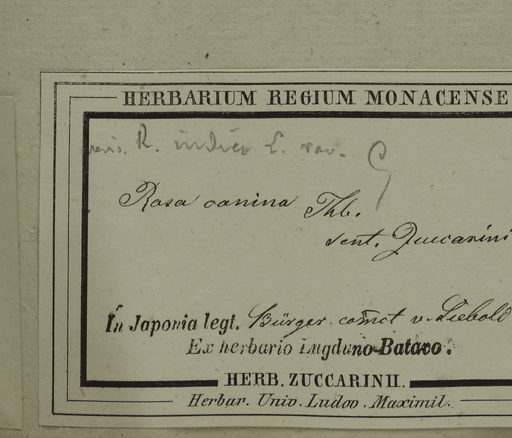 HERBARIUM REGIUM MONACENSE
R. indica L. var.
Rosa canina Thb.
sent. Zuccarini
In Japonia legt. Bürger. comct v. Siebold
Ex herbario Lugduno-Batavo.
HERB. ZUCCARINII.
Herbar. Univ. Ludov. Maximil.